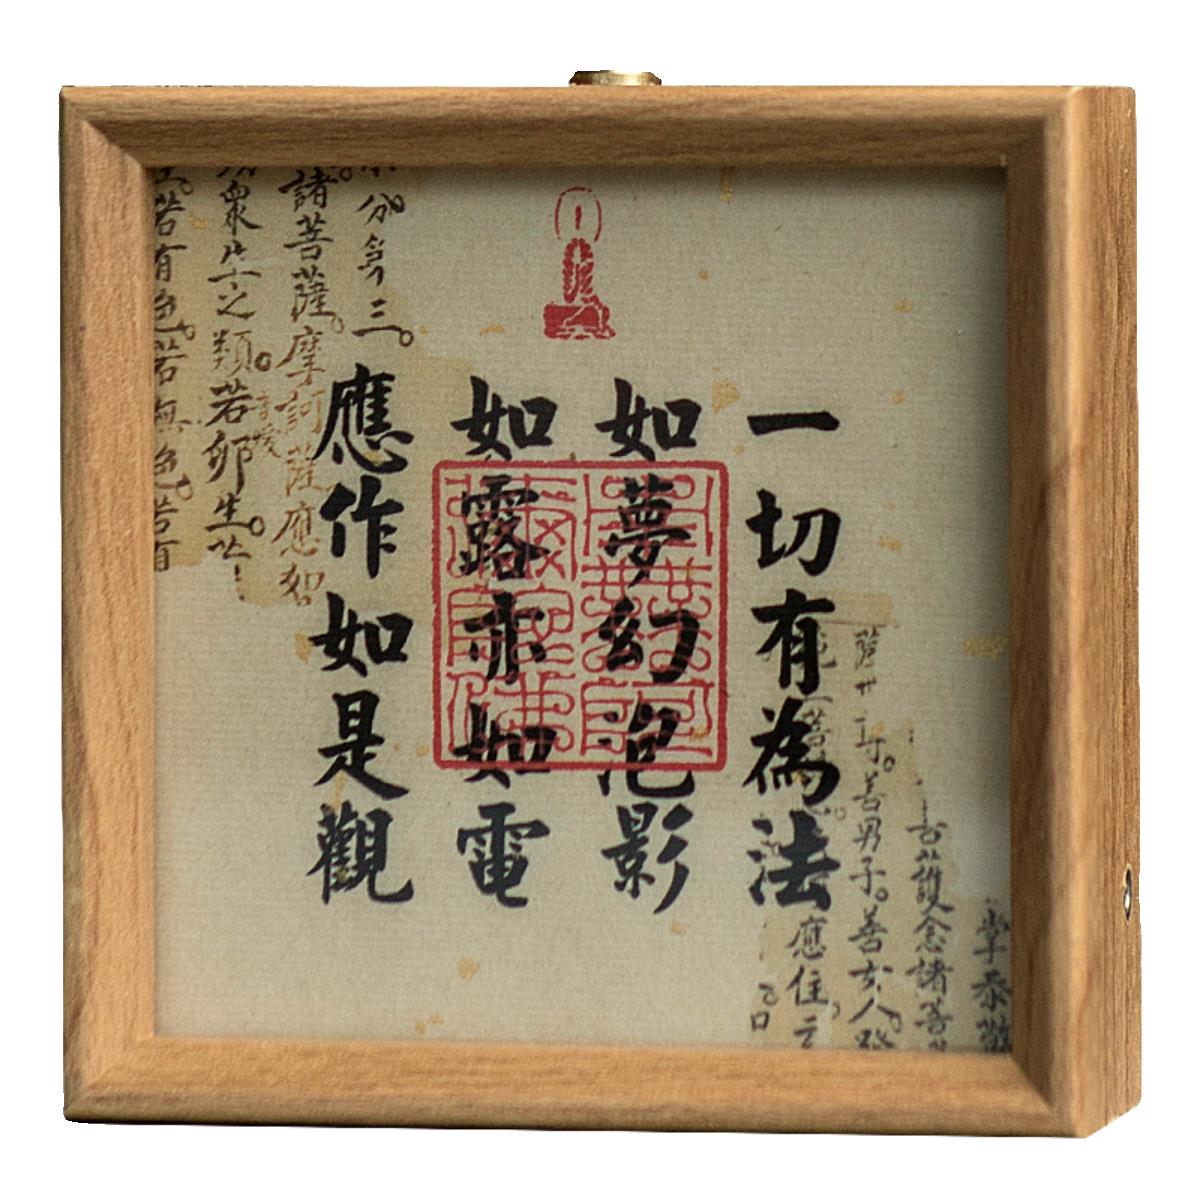 掌恭敬
護念諸菩
善男子。善女人。
應住。云
一切有為法
如夢幻泡影
如露亦如電
應作如是觀
分第三。
諸菩薩。摩訶薩應如
衆生之類。若卵生。
若有色。若無色。若有